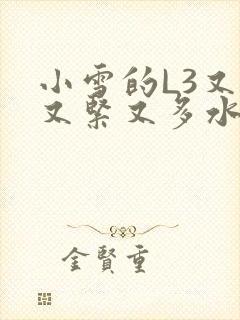 小雪的L3又
又紧又多水
金賢重